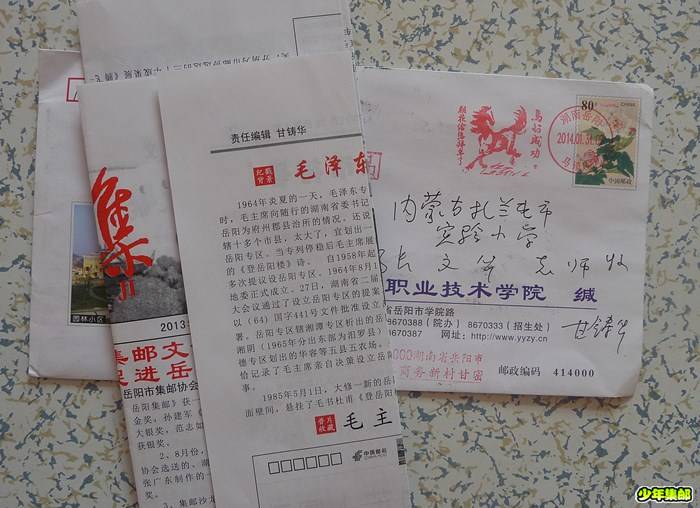 责任编辑 甘铸华
纪戳
背景
毛泽东
1964年炎夏的一天，毛泽东专
时，毛主席向随行的湖南省委书记
岳阳为府州郡县治所的情况，还说
辖十多个市县，太大了，宜划出一
岳阳。当专列停稳后毛主席展
的《登岳阳楼》诗。自1958年起
多次提议设岳阳专区。1964年8月1
地委正式成立。27日，湖南省二届
大会议通过了设立岳阳专区的提案
以（64）国字441号文件批准设立
署。岳阳专区辖湘潭专区析出的岳
湘阴（1965年分出东部为汨罗县）
德专区划出的华容等五县五农场。
恰记录了毛主席亲自决策设立岳
事。
1985年5月1日，大修一新的岳
面壁间，悬挂了毛书杜甫《登岳阳
音片
收藏
毛主
中国邮政
集
2013
集邮文
促进岳
岳阳市集邮协会
岳阳集邮》获一
金奖，孙建军《
大银奖，范志
获奖。
2、8月份，
协会选送的、湖
张广东制作的
银奖。
3、集邮沙龙
园林小区
马到成功
湖南岳阳
2014.01.31
80分
CHINA
中国邮政
内蒙古扎兰屯市
实验小学
张文举老师收
职业技术学院 缄
省岳阳市学院路
8670388（院办） 8670333（招生处）
8670387 网址：http://www.yyzy.cn
甘铸华
000湖南省岳阳市
商务新村甘密
邮政编码 414000
少年集邮